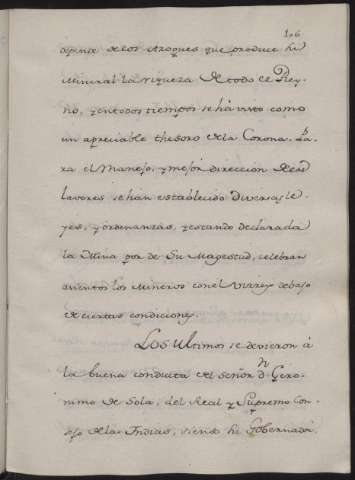 106
apense de los Azogues que produce su
Mineral la riqueza de todo el Rey-
no, y en todos tiempos se há visto como
un apreciable thesoro de la Corona. Pa-
ra el Manejo, y mejór direccion de sus
lavores se hán establecido diversas le-
yes, y ordenanzas, y estando declarada
la Mina por de Su Magestad, celebran
asientos los Mineros con el Virrey debajo
de ciertas condiciones.
Los Ultimos se devieron à
la buena conducta del Señor Dn Gero-
nimo de Sola, del Real y Supremo Con-
sejo de las Indias, siendo su Gobernadór,